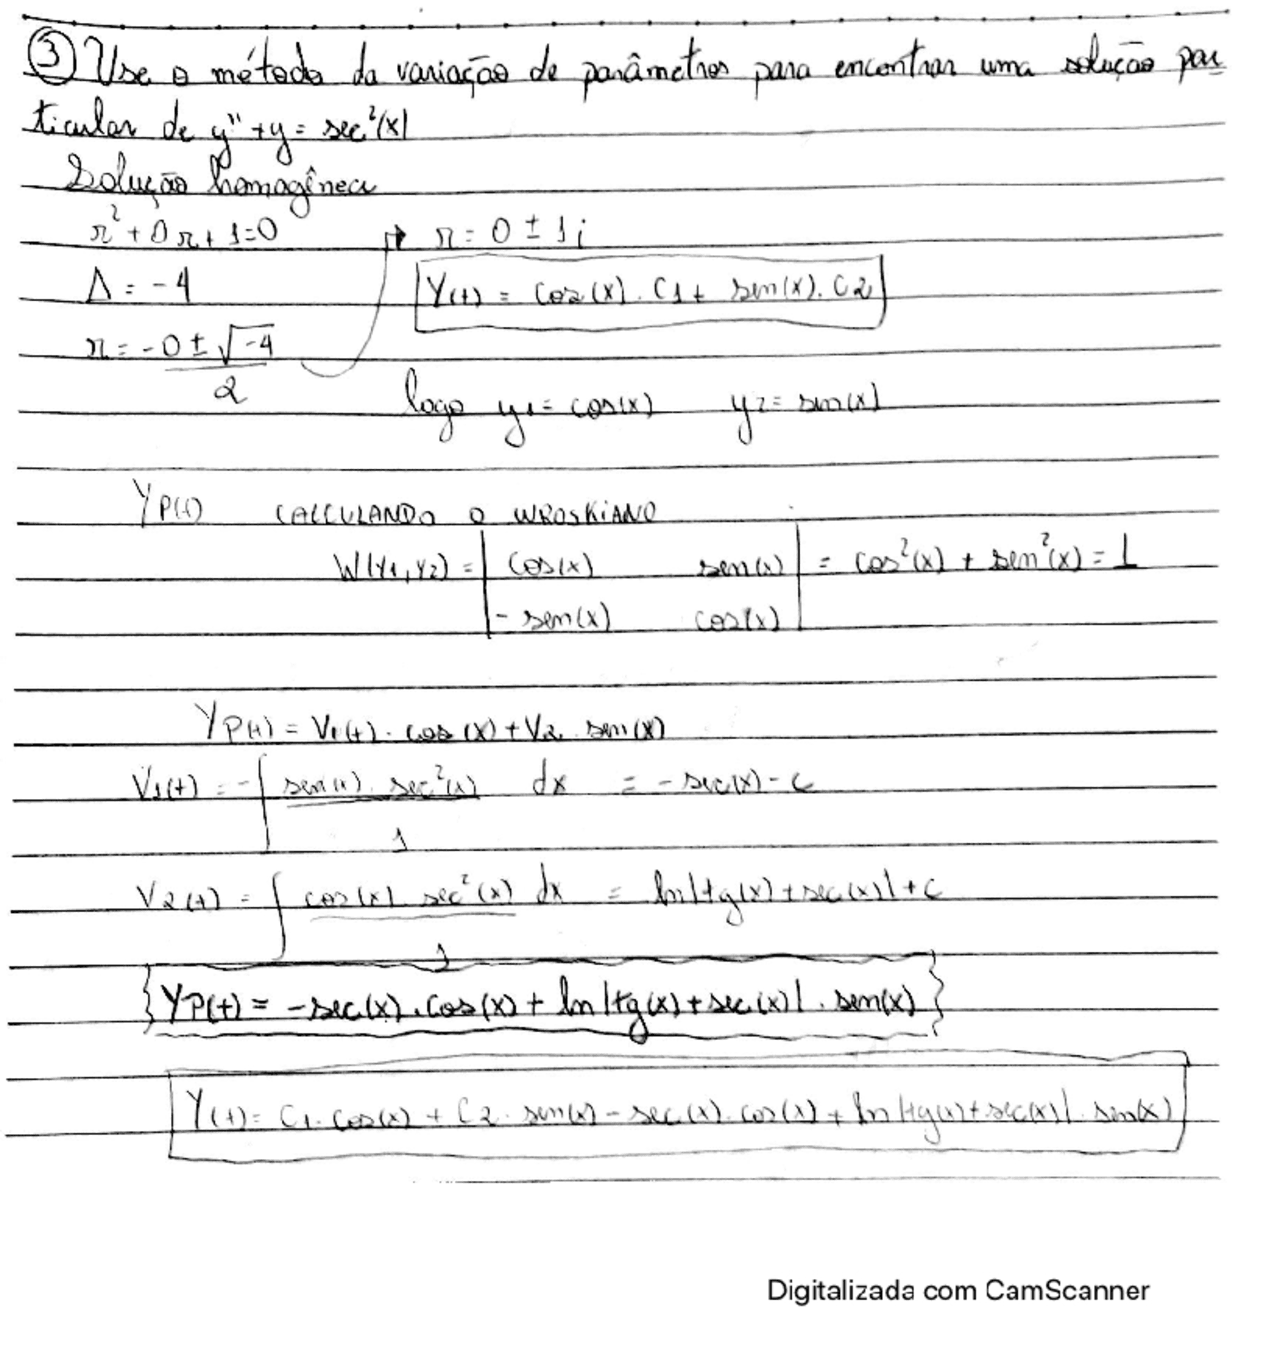 ③ Use o método da variação de parâmetros para encontrar uma solução par
ticular de y'' + y = sec²(x)
Solução homogênea
r² + 0r + 1 = 0 → r = 0 ± 1i
Δ = -4 Y(t) = cos(x) . C1 + sen(x) . C2
r = -0 ± √-4 / 2
logo y1 = cos(x) y2 = sen(x)
YP(t) CALCULANDO O WROSKIANO
W(Y1, Y2) = | cos(x) sen(x) | = cos²(x) + sen²(x) = 1
| - sen(x) cos(x) |
YP(t) = V1(t) . cos(x) + V2 . sen(x)
V1(t) = -∫ sen(x) . sec²(x) / 1 dx = - sec(x) - c
V2(t) = ∫ cos(x) sec²(x) / 1 dx = ln|tg(x) + sec(x)| + c
YP(t) = -sec(x) . cos(x) + ln|tg(x) + sec(x)| . sen(x)
Y(t) = C1 . cos(x) + C2 . sen(x) - sec(x) . cos(x) + ln|tg(x) + sec(x)| . sen(x)
Digitalizada com CamScanner